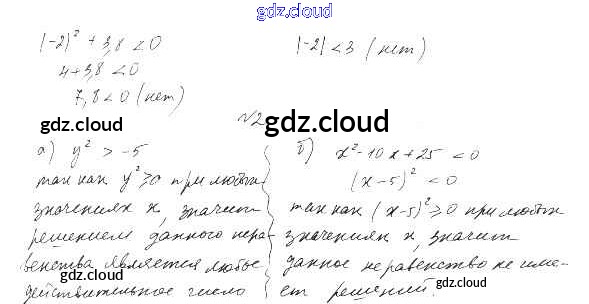 gdz.cloud
(-2)² + 3,8 < 0
|-2| < 3 (нет)
4 + 3,8 < 0
7,8 < 0 (нет)
gdz.cloud
gdz.cloud
№2
а) y² > -5
так как y² ≥ 0 при любых
значениях х, значит
решением данного нера-
венства является любое
действительное число
gdz.cloud
б) x² - 10x + 25 < 0
(x - 5)² < 0
так как (x - 5)² ≥ 0 при любых
значениях х, значит
данное неравенство не име-
ет решений
gdz.cloud